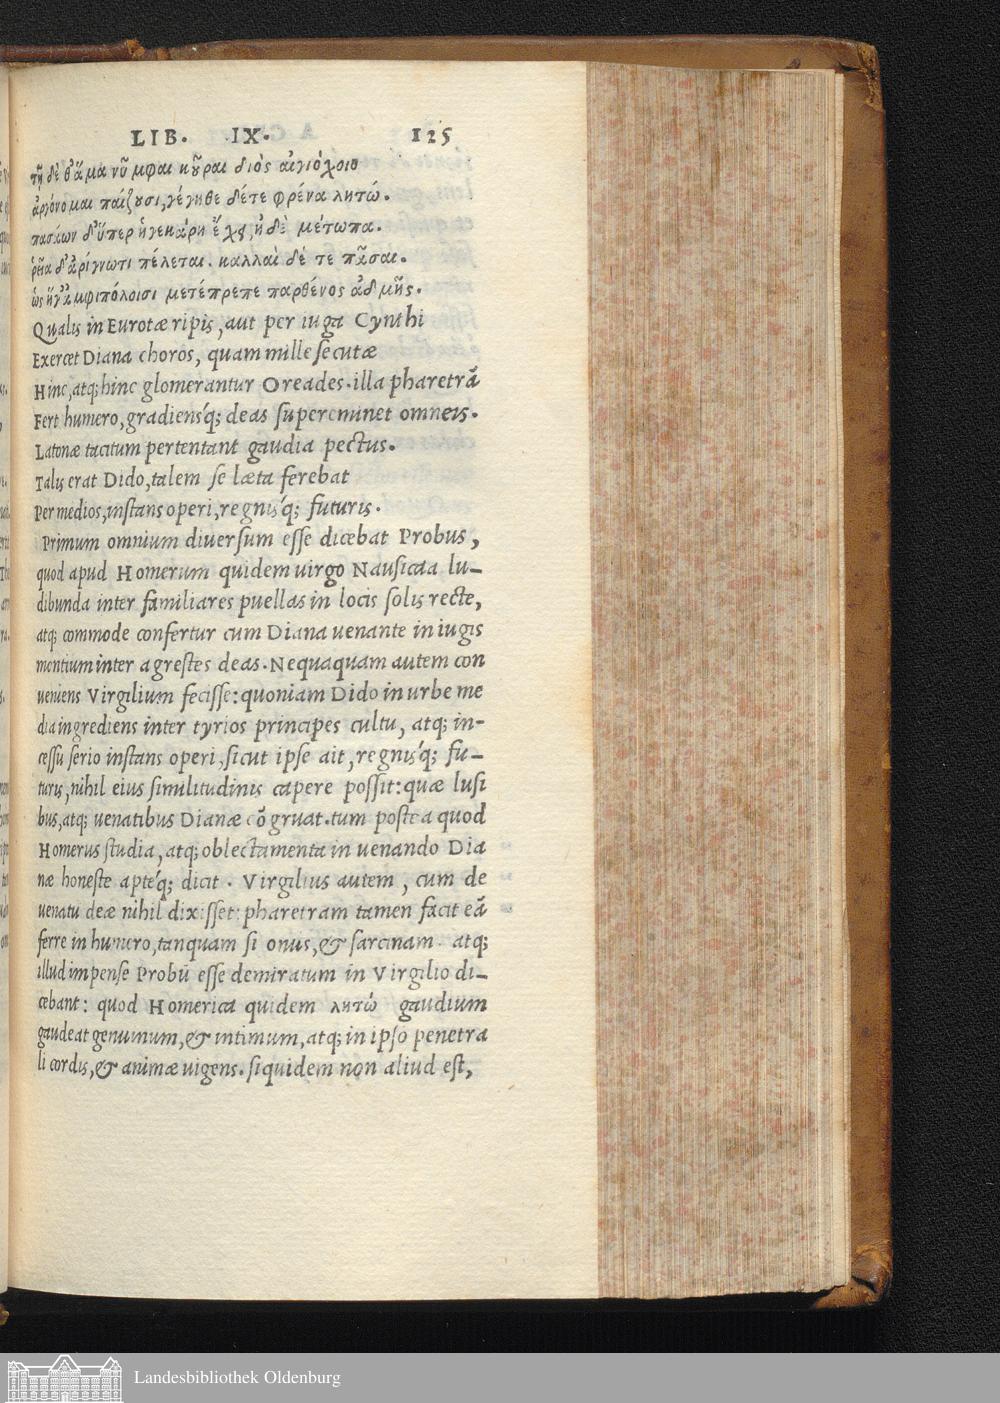 LIB. IX. 125
τῇ δέ θ' ἅμα νύμφαι κοῦραι διὸς αἰγιόχοιο
ἀγρόνομαι παίζουσι, γέγηθε δέ τε φρένα λητώ.
πασάων δ' ὕπερ ἥγε κάρη ἔχει, ἠδὲ μέτωπα.
ῥεῖα δ' ἀρίγνωτι πέλεται. καλλαὶ δέ τε πᾶσαι.
ὡς ἥγ' ἀμφιπόλοισι μετέπρεπε παρθένος ἀδμής.
Qualis in Eurotæ ripis, aut per iuga Cynthi
Exercet Diana choros, quam mille secutæ
Hinc, atq; hinc glomerantur Oreades. illa pharetrã
Fert humero, gradiens'q; deas supereminet omneis.
Latonæ tacitum pertentant gaudia pectus.
Talis erat Dido, talem se læta ferebat
Per medios, instans operi, regnis'q; futuris.
Primum omnium diuersum esse dicebat Probus,
quod apud Homerum quidem uirgo Nausicaa lu-
dibunda inter familiares puellas in locis solis recte,
atq; commode confertur cum Diana uenante in iugis
montium inter agrestes deas. Nequaquam autem con
ueniens Virgilium fecisse: quoniam Dido in urbe me
dia ingrediens inter tyrios principes cultu, atq; in-
cessu serio instans operi, sicut ipse ait, regnis'q; fu-
turis, nihil eius similitudinis capere possit: quæ lusi
bus, atq; uenatibus Dianæ cõgruat. tum postea quod
Homerus studia, atq; oblectamenta in uenando Dia
næ honeste apte'q; dicit. Virgilius autem, cum de
uenatu deæ nihil dixisset: pharetram tamen facit eã
ferre in humero, tanquam si onus, & sarcinam. atq;
illud impense Probũ esse demiratum in Virgilio di-
cebant: quod Homerica quidem λητώ gaudium
gaudeat genuinum, & intimum, atq; in ipso penetra
li cordis, & animæ uigens. siquidem non aliud est,
Landesbibliothek Oldenburg